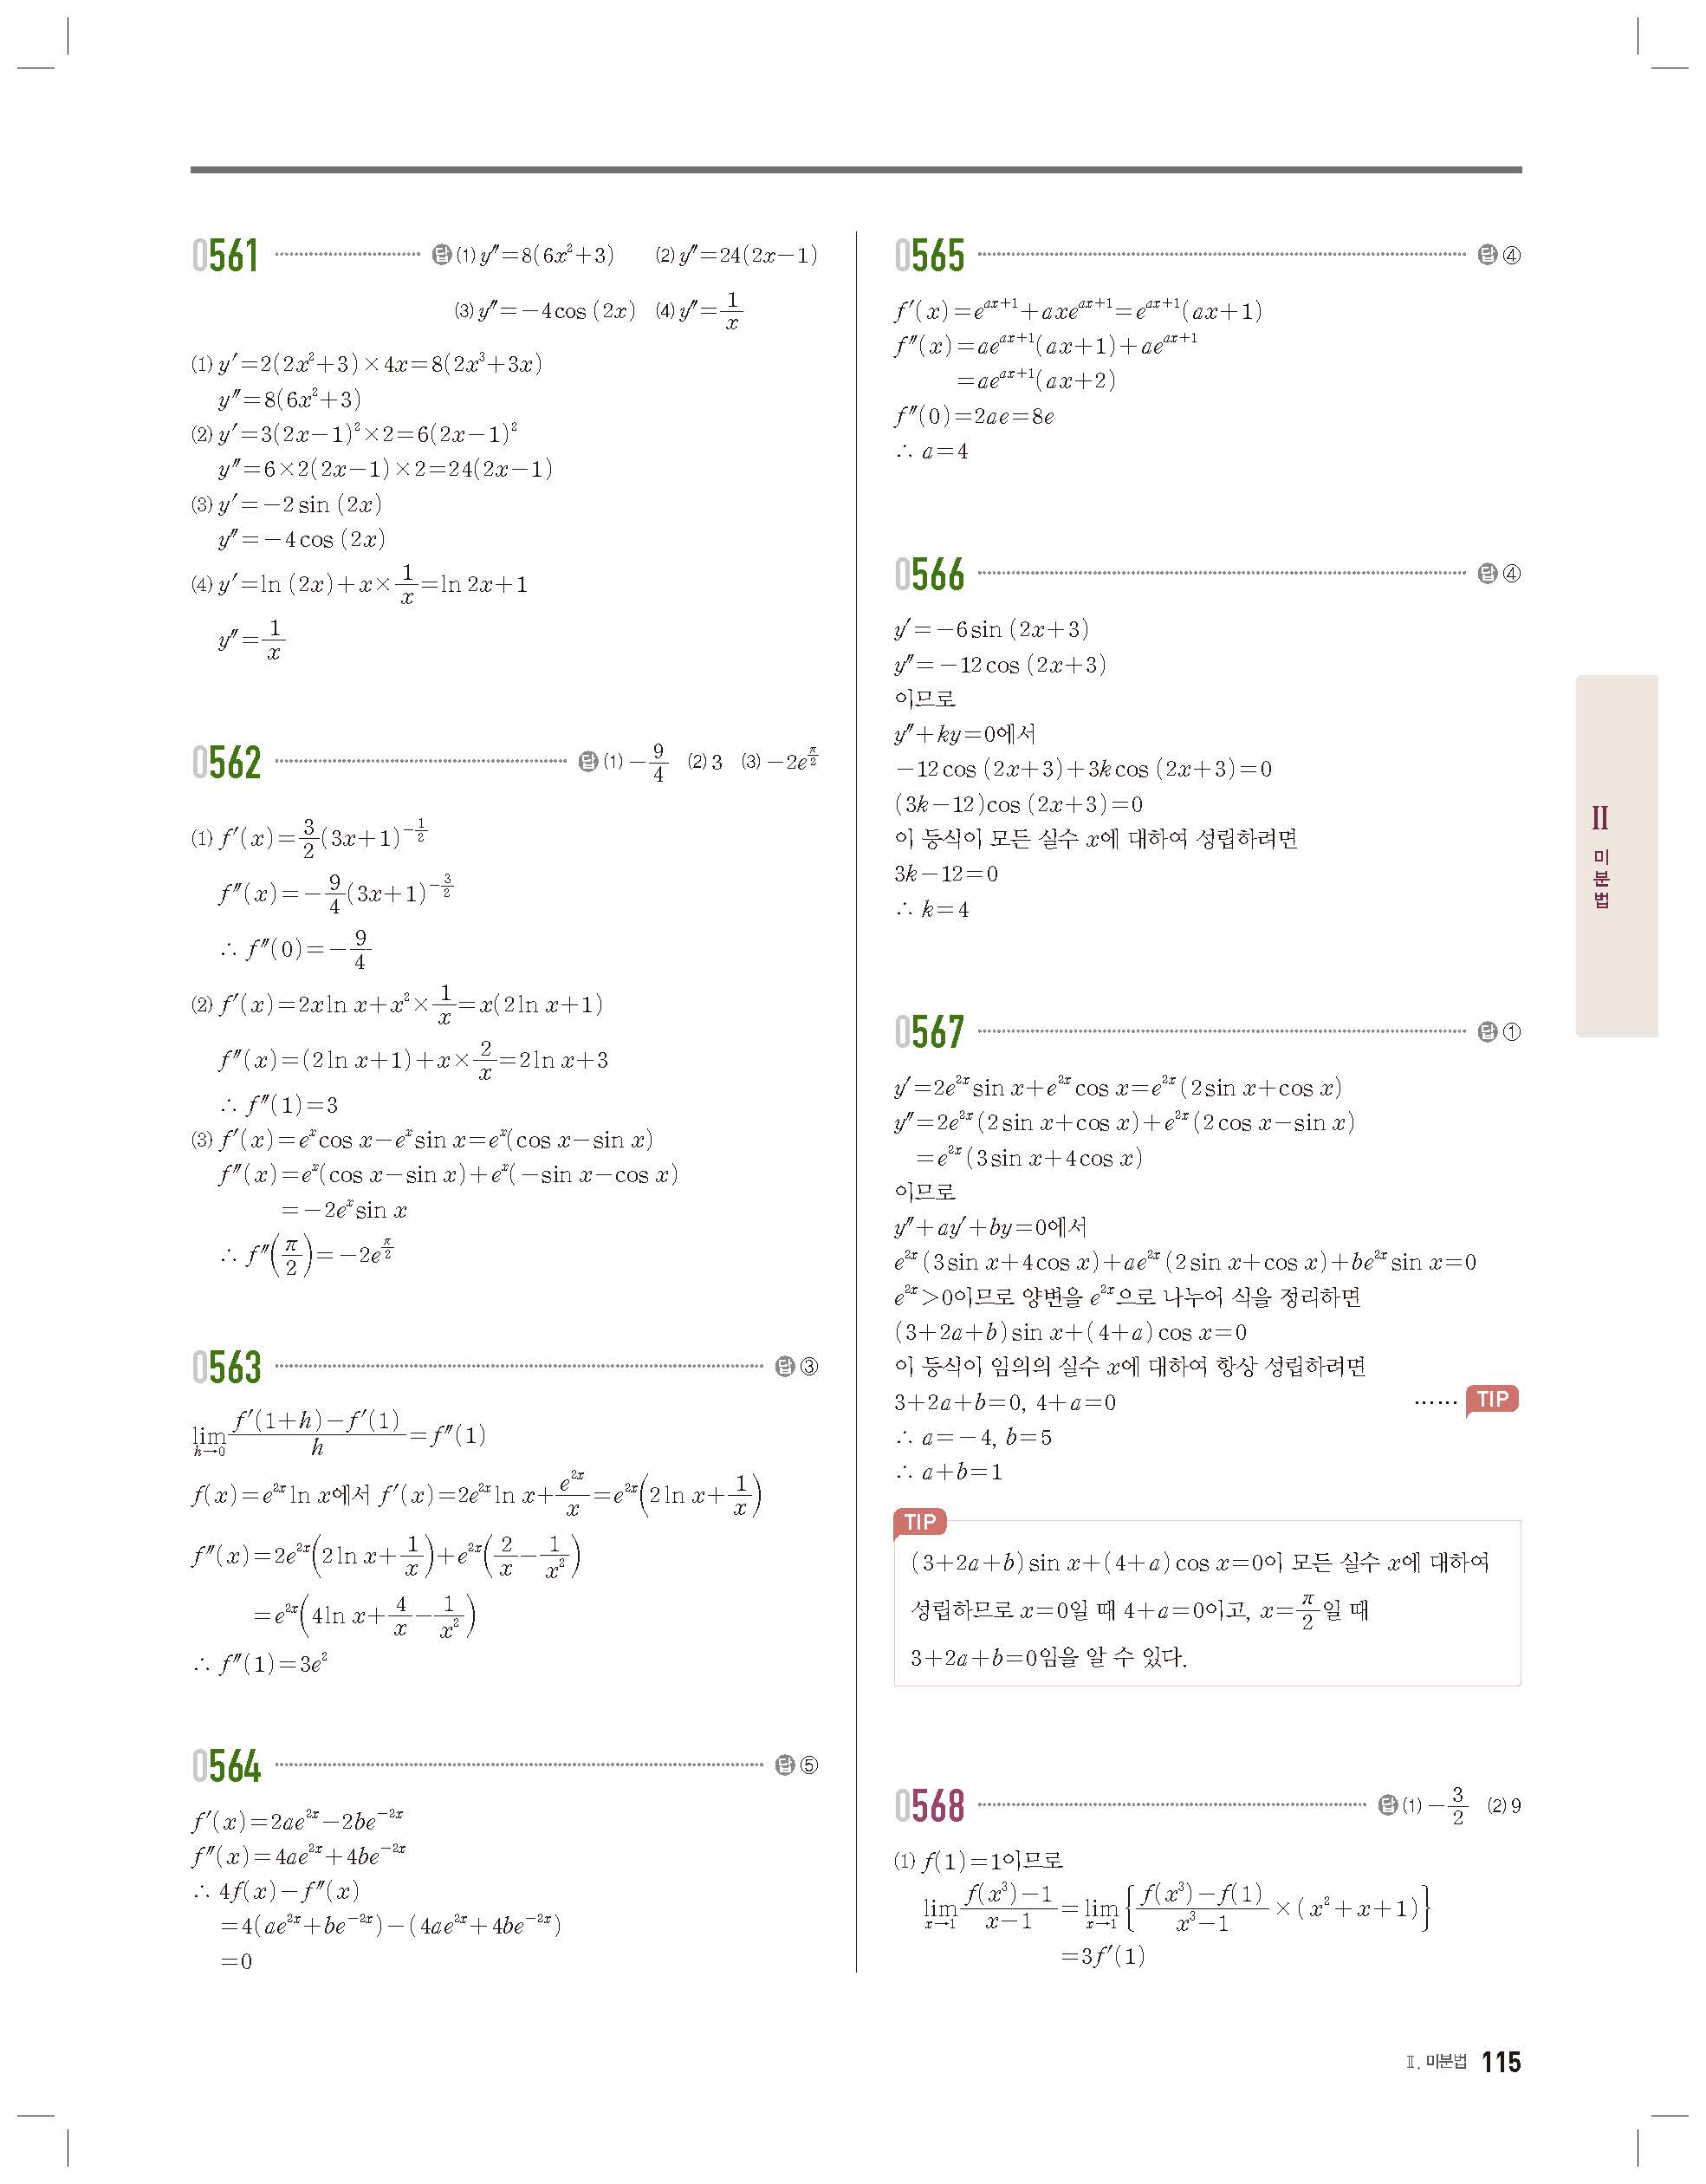 0561 답 ⑴ y″=8(6x²+3) ⑵ y″=24(2x-1)
⑶ y″=-4cos (2x) ⑷ y″=1/x
⑴ y′=2(2x²+3)×4x=8(2x³+3x)
y″=8(6x²+3)
⑵ y′=3(2x-1)²×2=6(2x-1)²
y″=6×2(2x-1)×2=24(2x-1)
⑶ y′=-2sin (2x)
y″=-4cos (2x)
⑷ y′=ln (2x)+x×1/x=ln 2x+1
y″=1/x
0562 답 ⑴ -9/4 ⑵ 3 ⑶ -2e^(π/2)
⑴ f′(x)=3/2(3x+1)^(-1/2)
f″(x)=-9/4(3x+1)^(-3/2)
∴ f″(0)=-9/4
⑵ f′(x)=2xln x+x²×1/x=x(2ln x+1)
f″(x)=(2ln x+1)+x×2/x=2ln x+3
∴ f″(1)=3
⑶ f′(x)=e^x cos x-e^x sin x=e^x(cos x-sin x)
f″(x)=e^x(cos x-sin x)+e^x(-sin x-cos x)
=-2e^x sin x
∴ f″(π/2)=-2e^(π/2)
0563 답 ③
lim_(h→0) (f′(1+h)-f′(1))/h=f″(1)
f(x)=e^(2x) ln x에서 f′(x)=2e^(2x) ln x+e^(2x)/x=e^(2x)(2ln x+1/x)
f″(x)=2e^(2x)(2ln x+1/x)+e^(2x)(2/x-1/x²)
=e^(2x)(4ln x+4/x-1/x²)
∴ f″(1)=3e²
0564 답 ⑤
f′(x)=2ae^(2x)-2be^(-2x)
f″(x)=4ae^(2x)+4be^(-2x)
∴ 4f(x)-f″(x)
=4(ae^(2x)+be^(-2x))-(4ae^(2x)+4be^(-2x))
=0
0565 답 ④
f′(x)=e^(ax+1)+axe^(ax+1)=e^(ax+1)(ax+1)
f″(x)=ae^(ax+1)(ax+1)+ae^(ax+1)
=ae^(ax+1)(ax+2)
f″(0)=2ae=8e
∴ a=4
0566 답 ④
y′=-6sin (2x+3)
y″=-12cos (2x+3)
이므로
y″+ky=0에서
-12cos (2x+3)+3kcos (2x+3)=0
(3k-12)cos (2x+3)=0
이 등식이 모든 실수 x에 대하여 성립하려면
3k-12=0
∴ k=4
0567 답 ①
y′=2e^(2x) sin x+e^(2x) cos x=e^(2x)(2sin x+cos x)
y″=2e^(2x)(2sin x+cos x)+e^(2x)(2cos x-sin x)
=e^(2x)(3sin x+4cos x)
이므로
y″+ay′+by=0에서
e^(2x)(3sin x+4cos x)+ae^(2x)(2sin x+cos x)+be^(2x) sin x=0
e^(2x)>0이므로 양변을 e^(2x)으로 나누어 식을 정리하면
(3+2a+b)sin x+(4+a)cos x=0
이 등식이 임의의 실수 x에 대하여 항상 성립하려면
3+2a+b=0, 4+a=0 …… TIP
∴ a=-4, b=5
∴ a+b=1
TIP
(3+2a+b)sin x+(4+a)cos x=0이 모든 실수 x에 대하여
성립하므로 x=0일 때 4+a=0이고, x=π/2일 때
3+2a+b=0임을 알 수 있다.
0568 답 ⑴ -3/2 ⑵ 9
⑴ f(1)=1이므로
lim_(x→1) (f(x³)-1)/(x-1)=lim_(x→1) {(f(x³)-f(1))/(x³-1)×(x²+x+1)}
=3f′(1)
Ⅱ
미분법
Ⅱ. 미분법 115